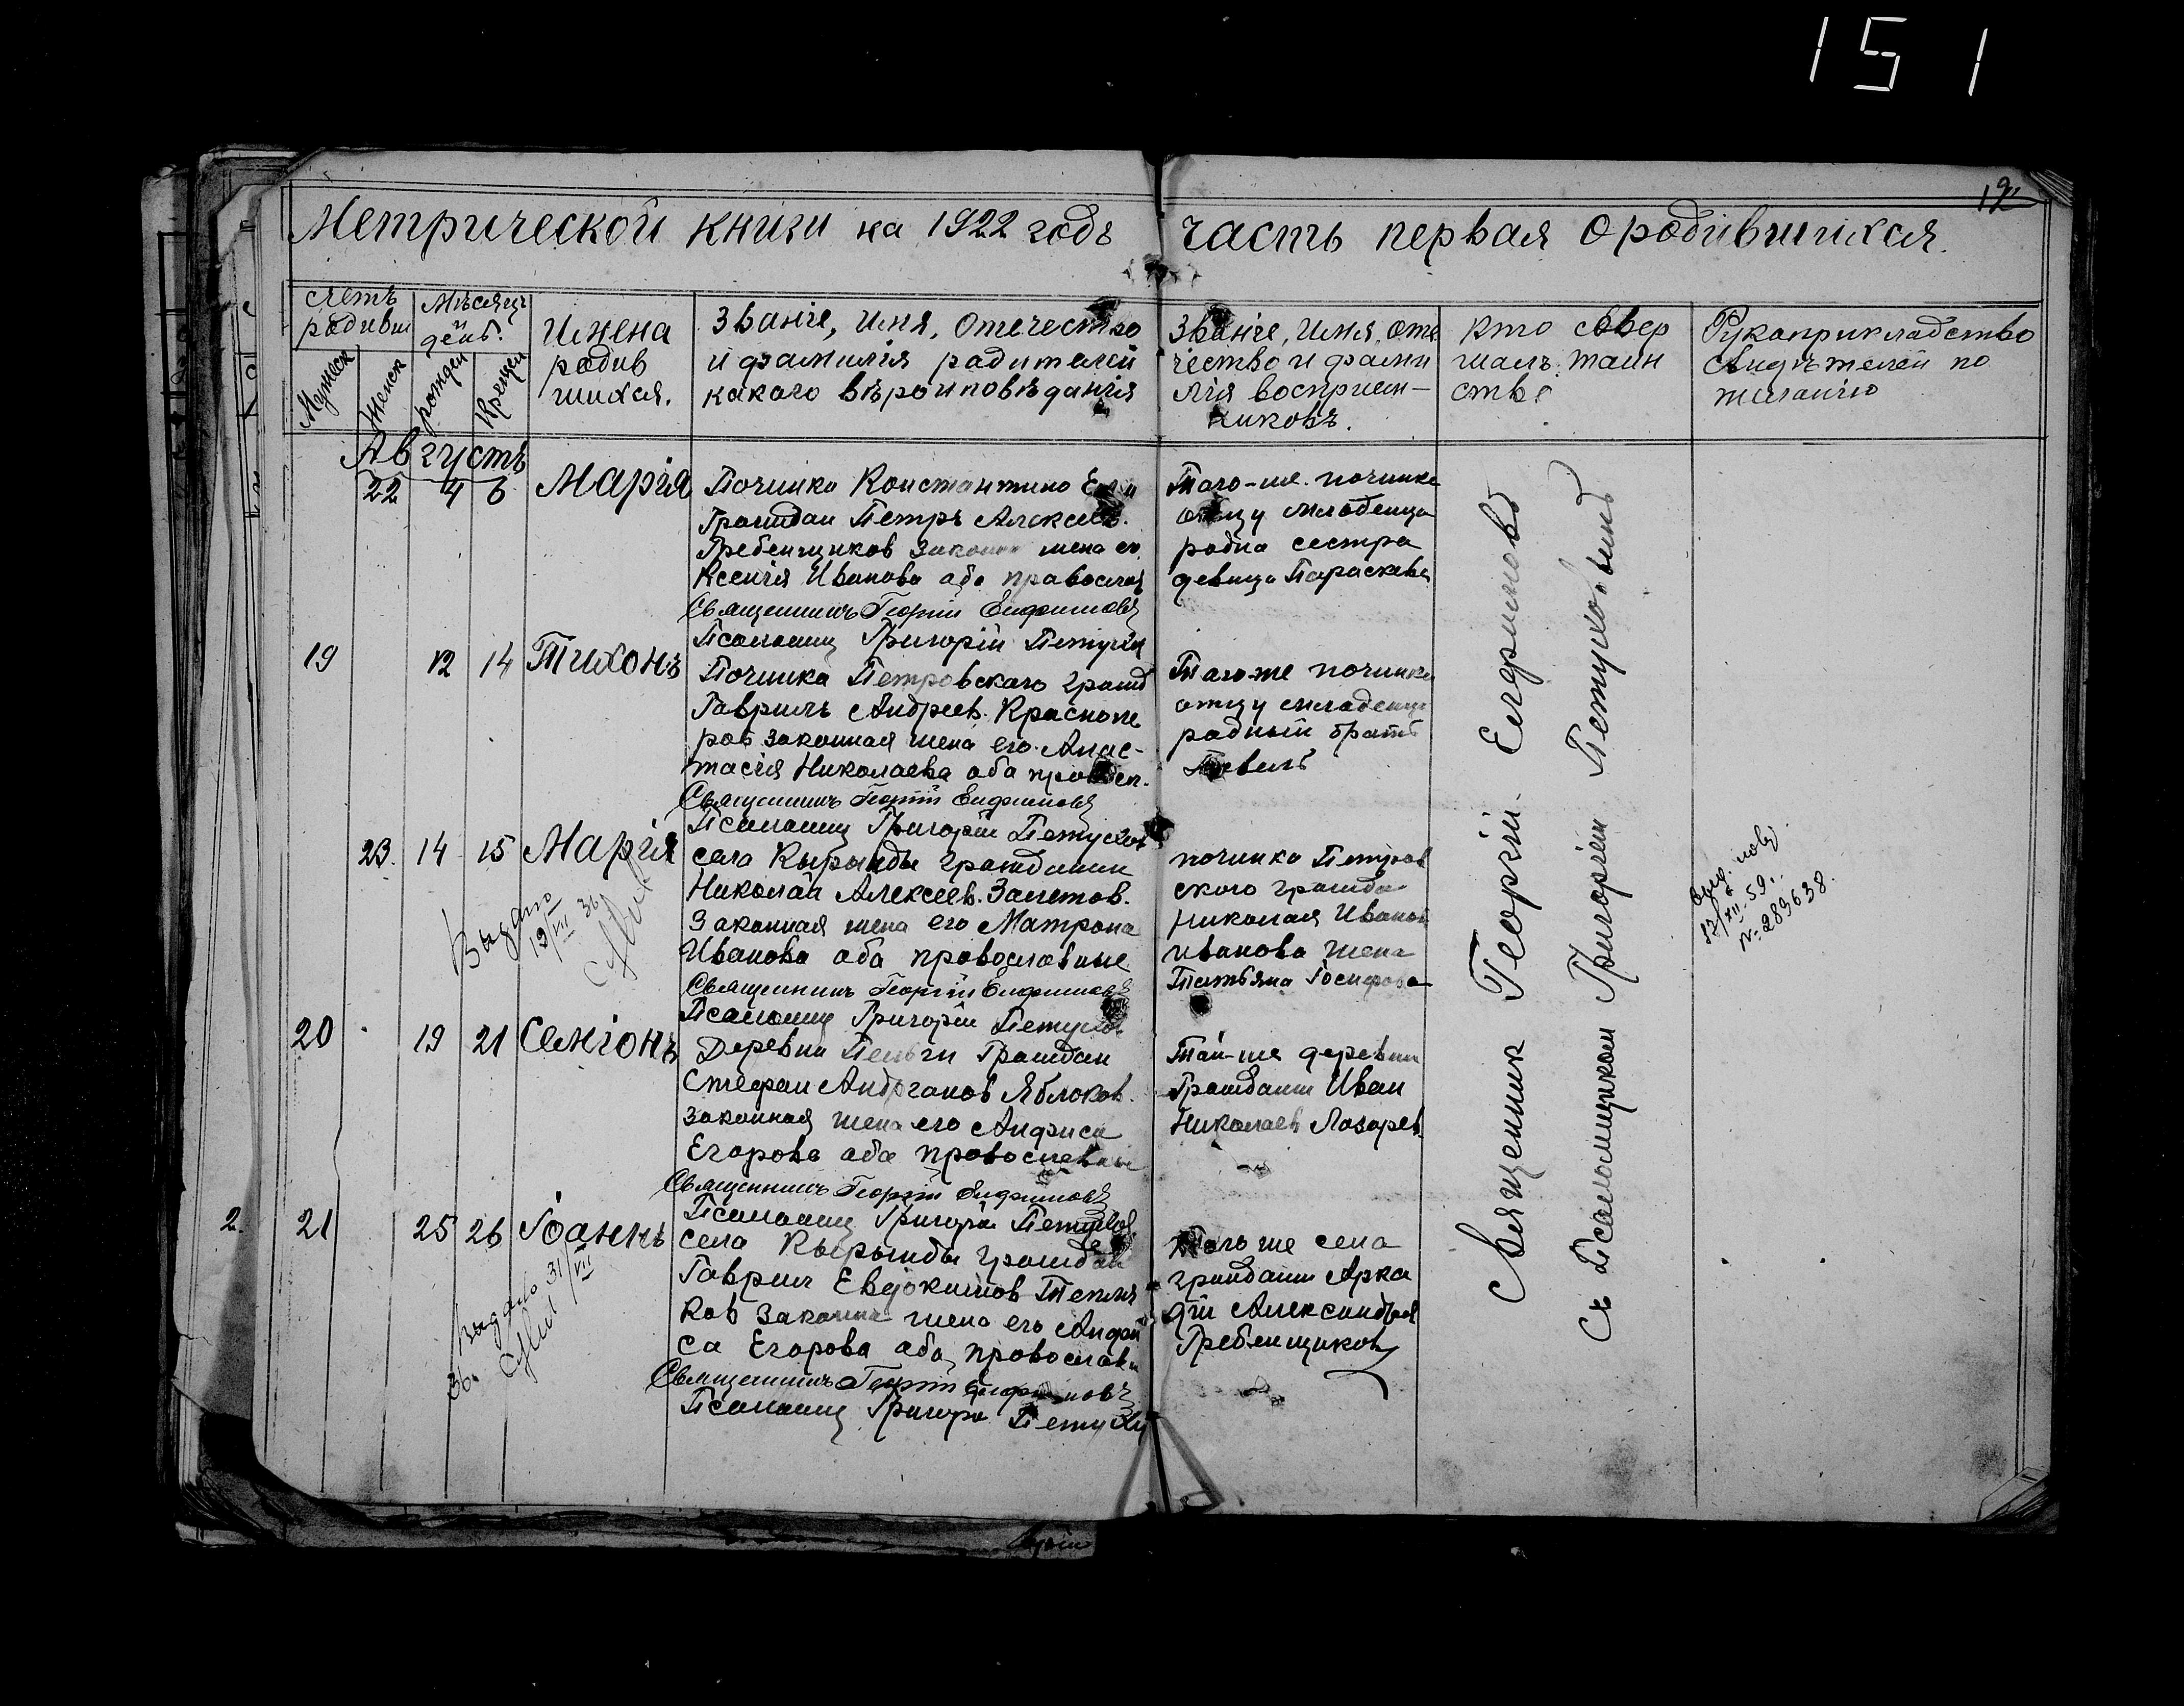 151
12
Метрической книги на 1922 годъ часть первая о родившихся.
счетъ родивш
Мужеск
Женск
Мѣсяцъ и день.
рожден
Крещен
Имена родив шихся.
Званіе, имя, Отечество
и фамилія радителей
какого вѣроисповѣданія
Званіе, имя, оте
чество и фами
лія восприем-
никовъ.
кто совер
шалъ таин
ство
Рукоприкладство
свидѣтелей по
желанію
Августъ
22 4 6 Марія
Починка Константино
Граждан Петръ Алексеев.
Гребенщиков Законн жена ег.
Ксенія Иванова аба православ
Священникъ Георгій Евфимовъ
Псаломщ Григорій Петухов
Таго-же починка
отцу младенца
радна сестра
девица Параскева
19 12 14 Тихонъ
Починка Петровскаго гражд
Гаврилъ Андреев. Краснопе
ров законная жена его Анас-
тасія Николаева аба правосл.
Священникъ Георгій Евфимовъ
Псаломщ Григорій Петухов
Таго-же починка
отцу младенца
радный братъ
Павелъ
23. 14 15 Марія
села Кырынды гражданин
Николай Алексеев. Залетов.
Законная жена его Матрона
Иванова аба православные
Священникъ Георгій Евфимовъ
Псаломщ Григорій Петухов
починка Петров
ского гражда
Николая Иванов
иванова жена
Татьяна Іосифова
Выдано
19/VII 36
20 19 21 Семіонъ
Деревни Граждан
Стефан Яблоков.
законная жена его Анфиса
Егорова аба православные
Священникъ Георгій Евфимовъ
Псаломщ Григорій Петухов
Той-же деревни
Гражданин Иван
Николаев Лазарев.
2.
21 25 26 Іоаннъ
села Кырынды граждан
Гаврил Евдокимов Тепля
ков законна жена его Анфи
са Егорова аба православн
Священникъ Георгій Евфимовъ
Псаломщ Григорій Петухов
Таго же села
гражданин Арка
дій Александров
Гребенщиков
Выдано 31/VII
36.
Священник Георгій Евфимовъ
Съ Псаломщиком Григоріем Петуховымъ
12/XII-59.
№ 283638.